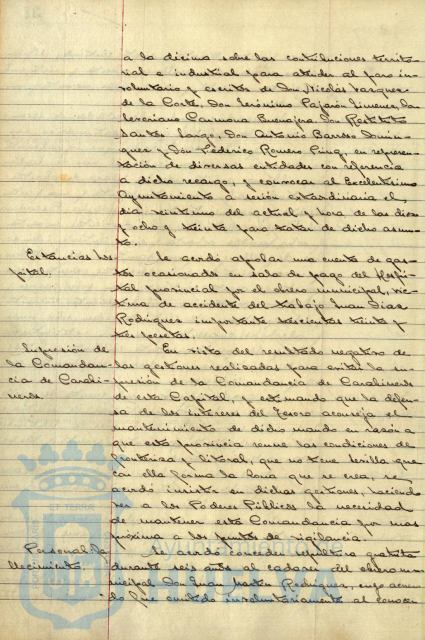 a la décima sobre las contribuciones territo-
rial e industrial para atender al paro in-
voluntario y escritos de Don Nicolás Vazquez
de la Corte, Don Jerónimo Pajarón Jimenez, Don
Severiano Carmona Don Restituto
Santos Don Antonio Barroso Domin-
guez y Don Federico Romero en represen-
tación de diversas entidades con referencia
a dicho recargo, y convocar al Excelentísimo
Ayuntamiento a sesión extraordinaria el
día veintiuno del actual y hora de las diez
y ocho y treinta para tratar de dicho asun-
to.
Estancias hos-
pital.
Se acordó aprobar una cuenta de gas-
tos ocasionados en sala de pago del Hospi-
tal provincial por el obrero municipal, víc-
tima de accidente del trabajo Juan Dias
Rodriguez importante trescientas treinta y
tres pesetas.
Supresión de
la Comandan-
cia de Carabi-
neros
En vista del resultado negativo de
las gestiones realizadas para evitar la su-
presión de la Comandancia de Carabineros
de esta Capital, y estimando que la defen-
sa de los intereses del Tesoro aconseja el
mantenimiento de dicho mando en razón a
que esta provincia reune las condiciones de
fronteriza y litoral, que no tiene Sevilla que
con ella forma la Zona que se crea, se
acordó insistir en dichas gestiones, haciendo
ver a los Poderes Públicos la necesidad
de mantener esta Comandancia por mas
próxima a los puntos de vigilancia.
Personal fa-
llecimiento.
Se acordó conceder sepultura gratuita
durante seis años al cadáver del obrero mu-
nicipal Don Juan Martin Rodriguez, cuyo acuer-
do fue omitido involuntariamente al conocer